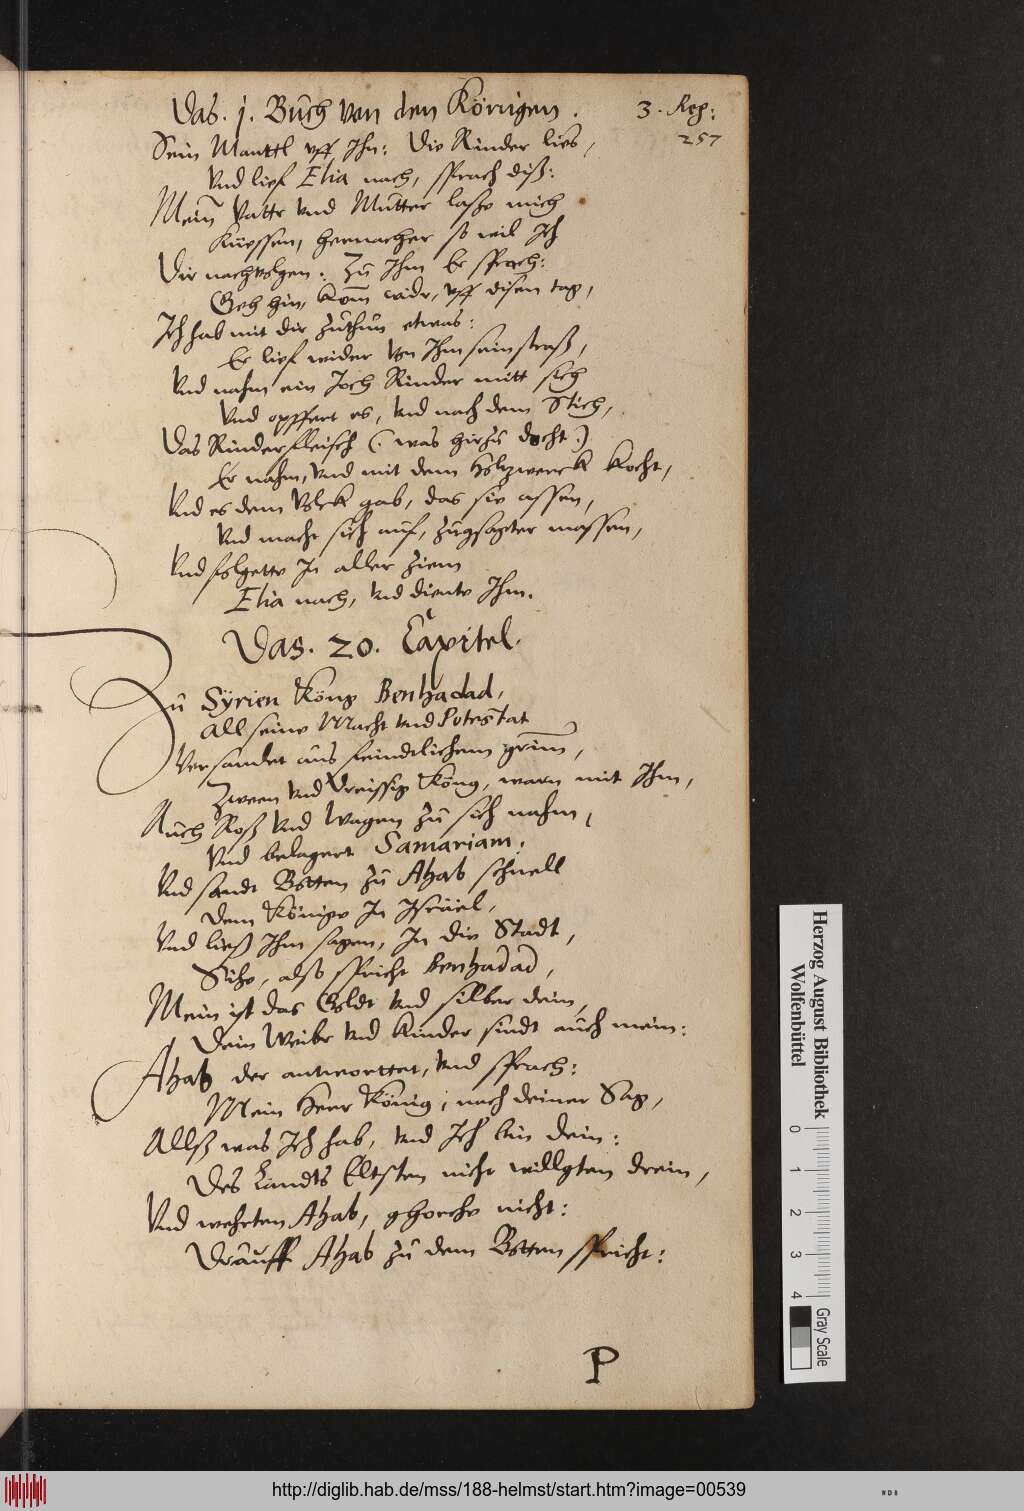 Das. j. Buch von den Königen.
3. Reg:
257
Sein Manttl vff Ihn: Die Rinder lies,
Vnd lief Elia nach, sprach diß:
Mein Vattr vnd Mutter laße mich
Küessen, hernacher so wil Ich
Dir nachvolgen: Zu Ihm Er sprach:
Geh hin, kom̄ widr, vff disen tag,
Ich hab mit dir zuthun etwas:
Er lief wider von Ihm sein straß,
Vnd nahm ein Joch Rinder mitt sich
Vnd opffert es, vnd nach dem Stich,
Das Rinderfleisch (: was hirzu docht :)
Er nahm, vnd mit dem holtzwerck kocht,
Vnd es dem Volck gab, das sie assen,
Vnd macht sich auf, zugsagter massen,
Vnd folgette In aller ziem
Elia nach, vnd diente Ihm.
Das. 20. Capitel.
Zu Syrien Köng Benhadad,
All seine Macht vnd Potestat
Versamlet aus feindtlichem grim̄,
Zween vnd Dreissig Köng, warn mit Ihm,
Auch Roß vnd Wagen zu sich nahm,
Vnd belagert Samariam.
Vnd sandt Botten zu Ahab schnell
Dem Könige In Israel,
Vnd ließ Ihm sagen, In die Stadt,
Sihe, also spricht Benhadad,
Mein ist das Goldt vnd silber dein,
Dein Weibr vnd Kinder sindt auch mein:
Ahab der antworttet, vnd sprach:
Mein Herr König, nach deiner Sag,
Allß was Ich hab, vnd Ich bin dein:
Des Landts Eltsten nicht willgten drein,
Vnd wehrten Ahab, ghorche nicht:
Drauff Ahab zu dem Botten spricht:
P
Herzog August Bibliothek
Wolfenbüttel
0 1 2 3 4
Gray Scale
http://diglib.hab.de/mss/188-helmst/start.htm?image=00539